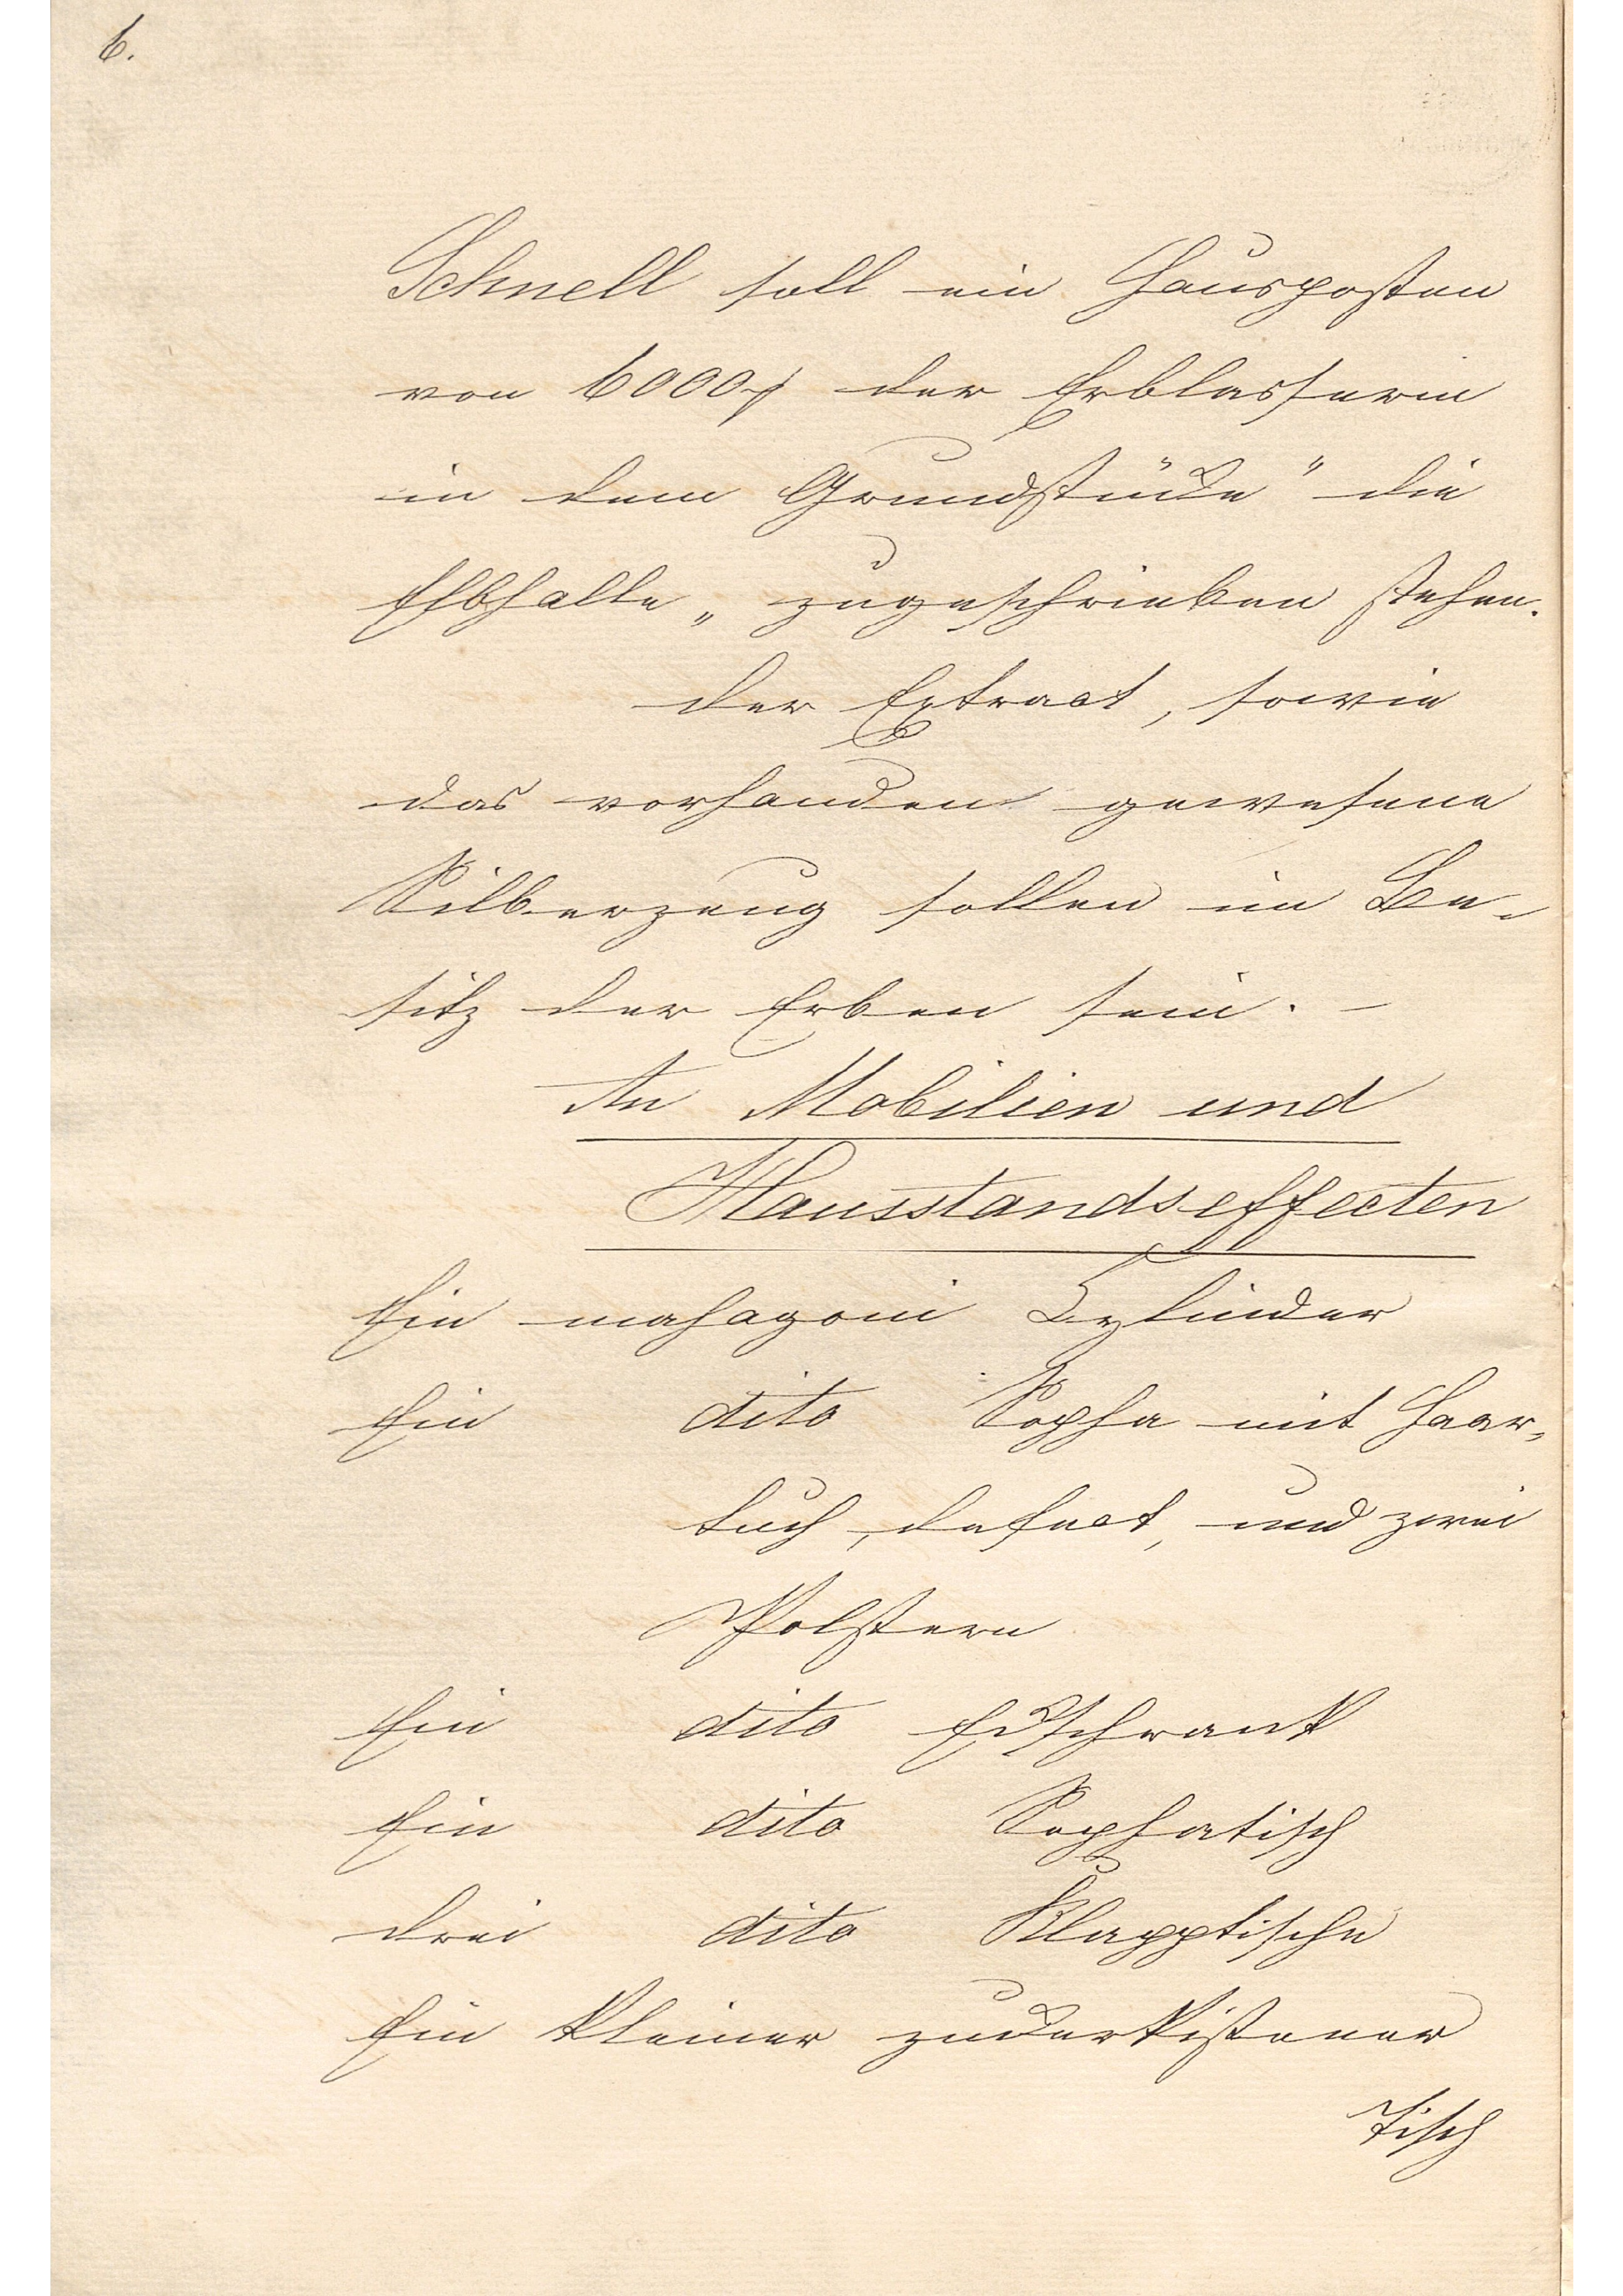 6.
Schnell soll ein Hausposten
von 6000 der Erblasserin
in dem Grundstücke " die
Elbhalle „ zugeschrieben stehen.
der Extract, sowie
das vorhanden gewesene
Silberzeug sollen im Be-
sitz der Erben sein. –
An Mobilien und
Hausstandseffecten
Ein mahagoni Cylinder
Ein dito Sopha mit Haar-
tuch, defect, und zwei
Polstern
Ein dito Eckschrank
Ein dito Sophatisch
drei dito Klapptische
Ein kleiner zuckerkistener
Tisch